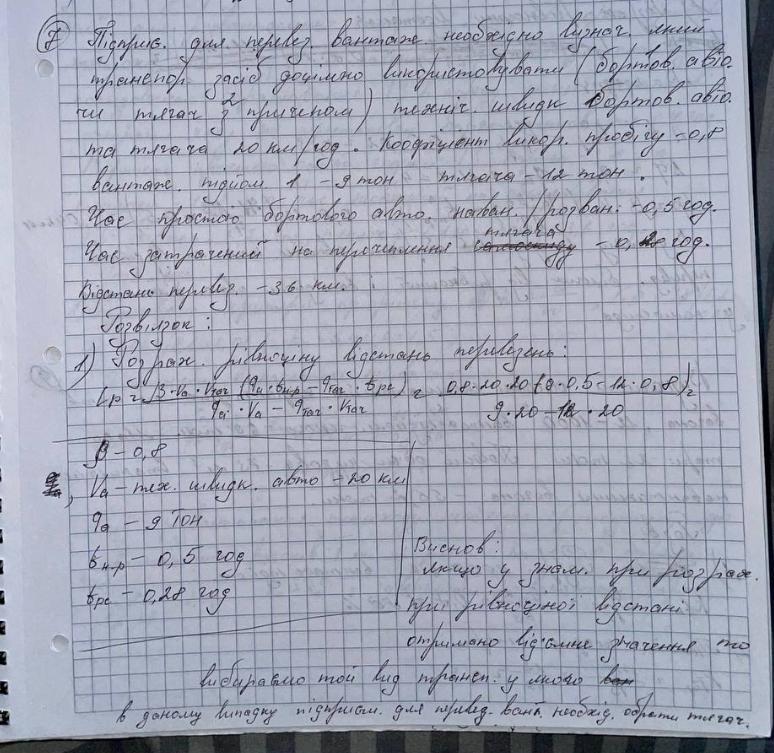 7 Підприє. для перевез. вантаже. необхідно визнач. який
транспор. засіб доцільно використовувати (бортов. авто.
чи тягач з 2 причепом) техніч. швидк бортов. авто.
та тягача 20 км/год. Коофіцієнт викор. пробігу -0,8
вантаж. підйом 1 -9 тон - тягача -12 тон.
Час простою бортового авто. наван./розван: -0,5 год.
Час затрачений на перечеплення тягача - 0,28 год.
Відстань перевез. -36 км.
Розвязок:
1) Розрах. рівноцінну відстань перевезень:
Lр = β·Va·Vтяг (qa·tн-р - qтяг·tрс) / qa·Va - qтяг·Vтяг = 0,8·20·20(9·0,5-12·0,8) / 9·20-12·20 =
β - 0,8
Va - тех. швидк. авто -20 км
qa - 9 тон
tн-р - 0,5 год
tрс - 0,28 год
Виснов:
якщо у знам. при розрах.
при рівноцінної відстані
отримано від'ємне значення то
вибираємо той вид трансп. у якого
в даному випадку підприєм. для перевез. вант. необхід. обрати тягач.